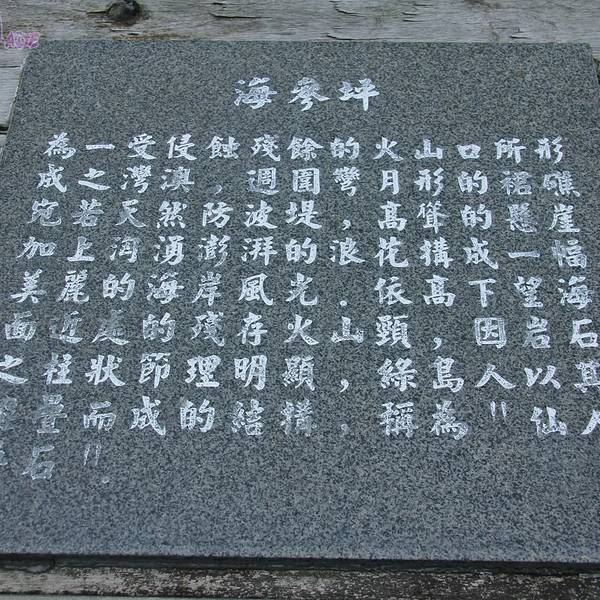 海參坪
為一受侵蝕殘餘的火山口所形
成之灣澳,週圍彎月形的裙礁
宛若天然防波堤,高聳的懸崖
加上洶湧澎湃的浪花構成一幅
美麗的海岸風光.依高下望海
面近處的殘存火山頸,因岩石
之柱狀節理明顯,綠島人以其
疊而成的結構,稱為"仙人
疊石".